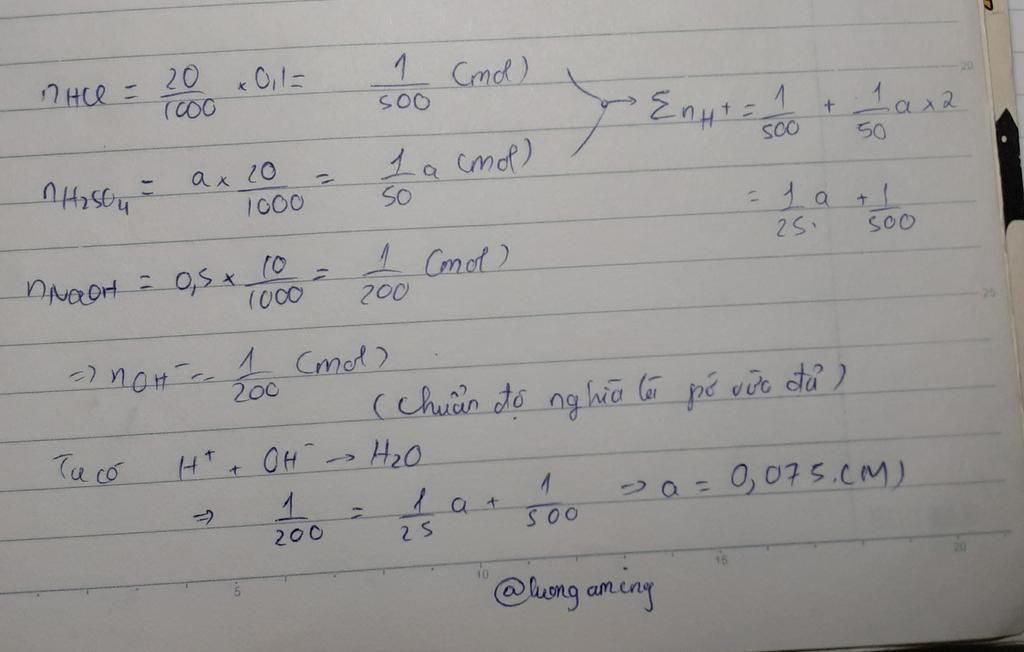 nHCl = 20/1000 × 0,1 = 1/500 (mol)
nH2SO4 = a × 20/1000 = 1/50 a (mol)
Σ nH+ = 1/500 + 1/50 a × 2
= 1/25 a + 1/500
nNaOH = 0,5 × 10/1000 = 1/200 (mol)
=> nOH- = 1/200 (mol)
(Chuẩn độ nghĩa là pứ vừa đủ)
Ta có H+ + OH- → H2O
=> 1/200 = 1/25 a + 1/500 => a = 0,075 (M)
@luongaming
5 10 15 20
20
25